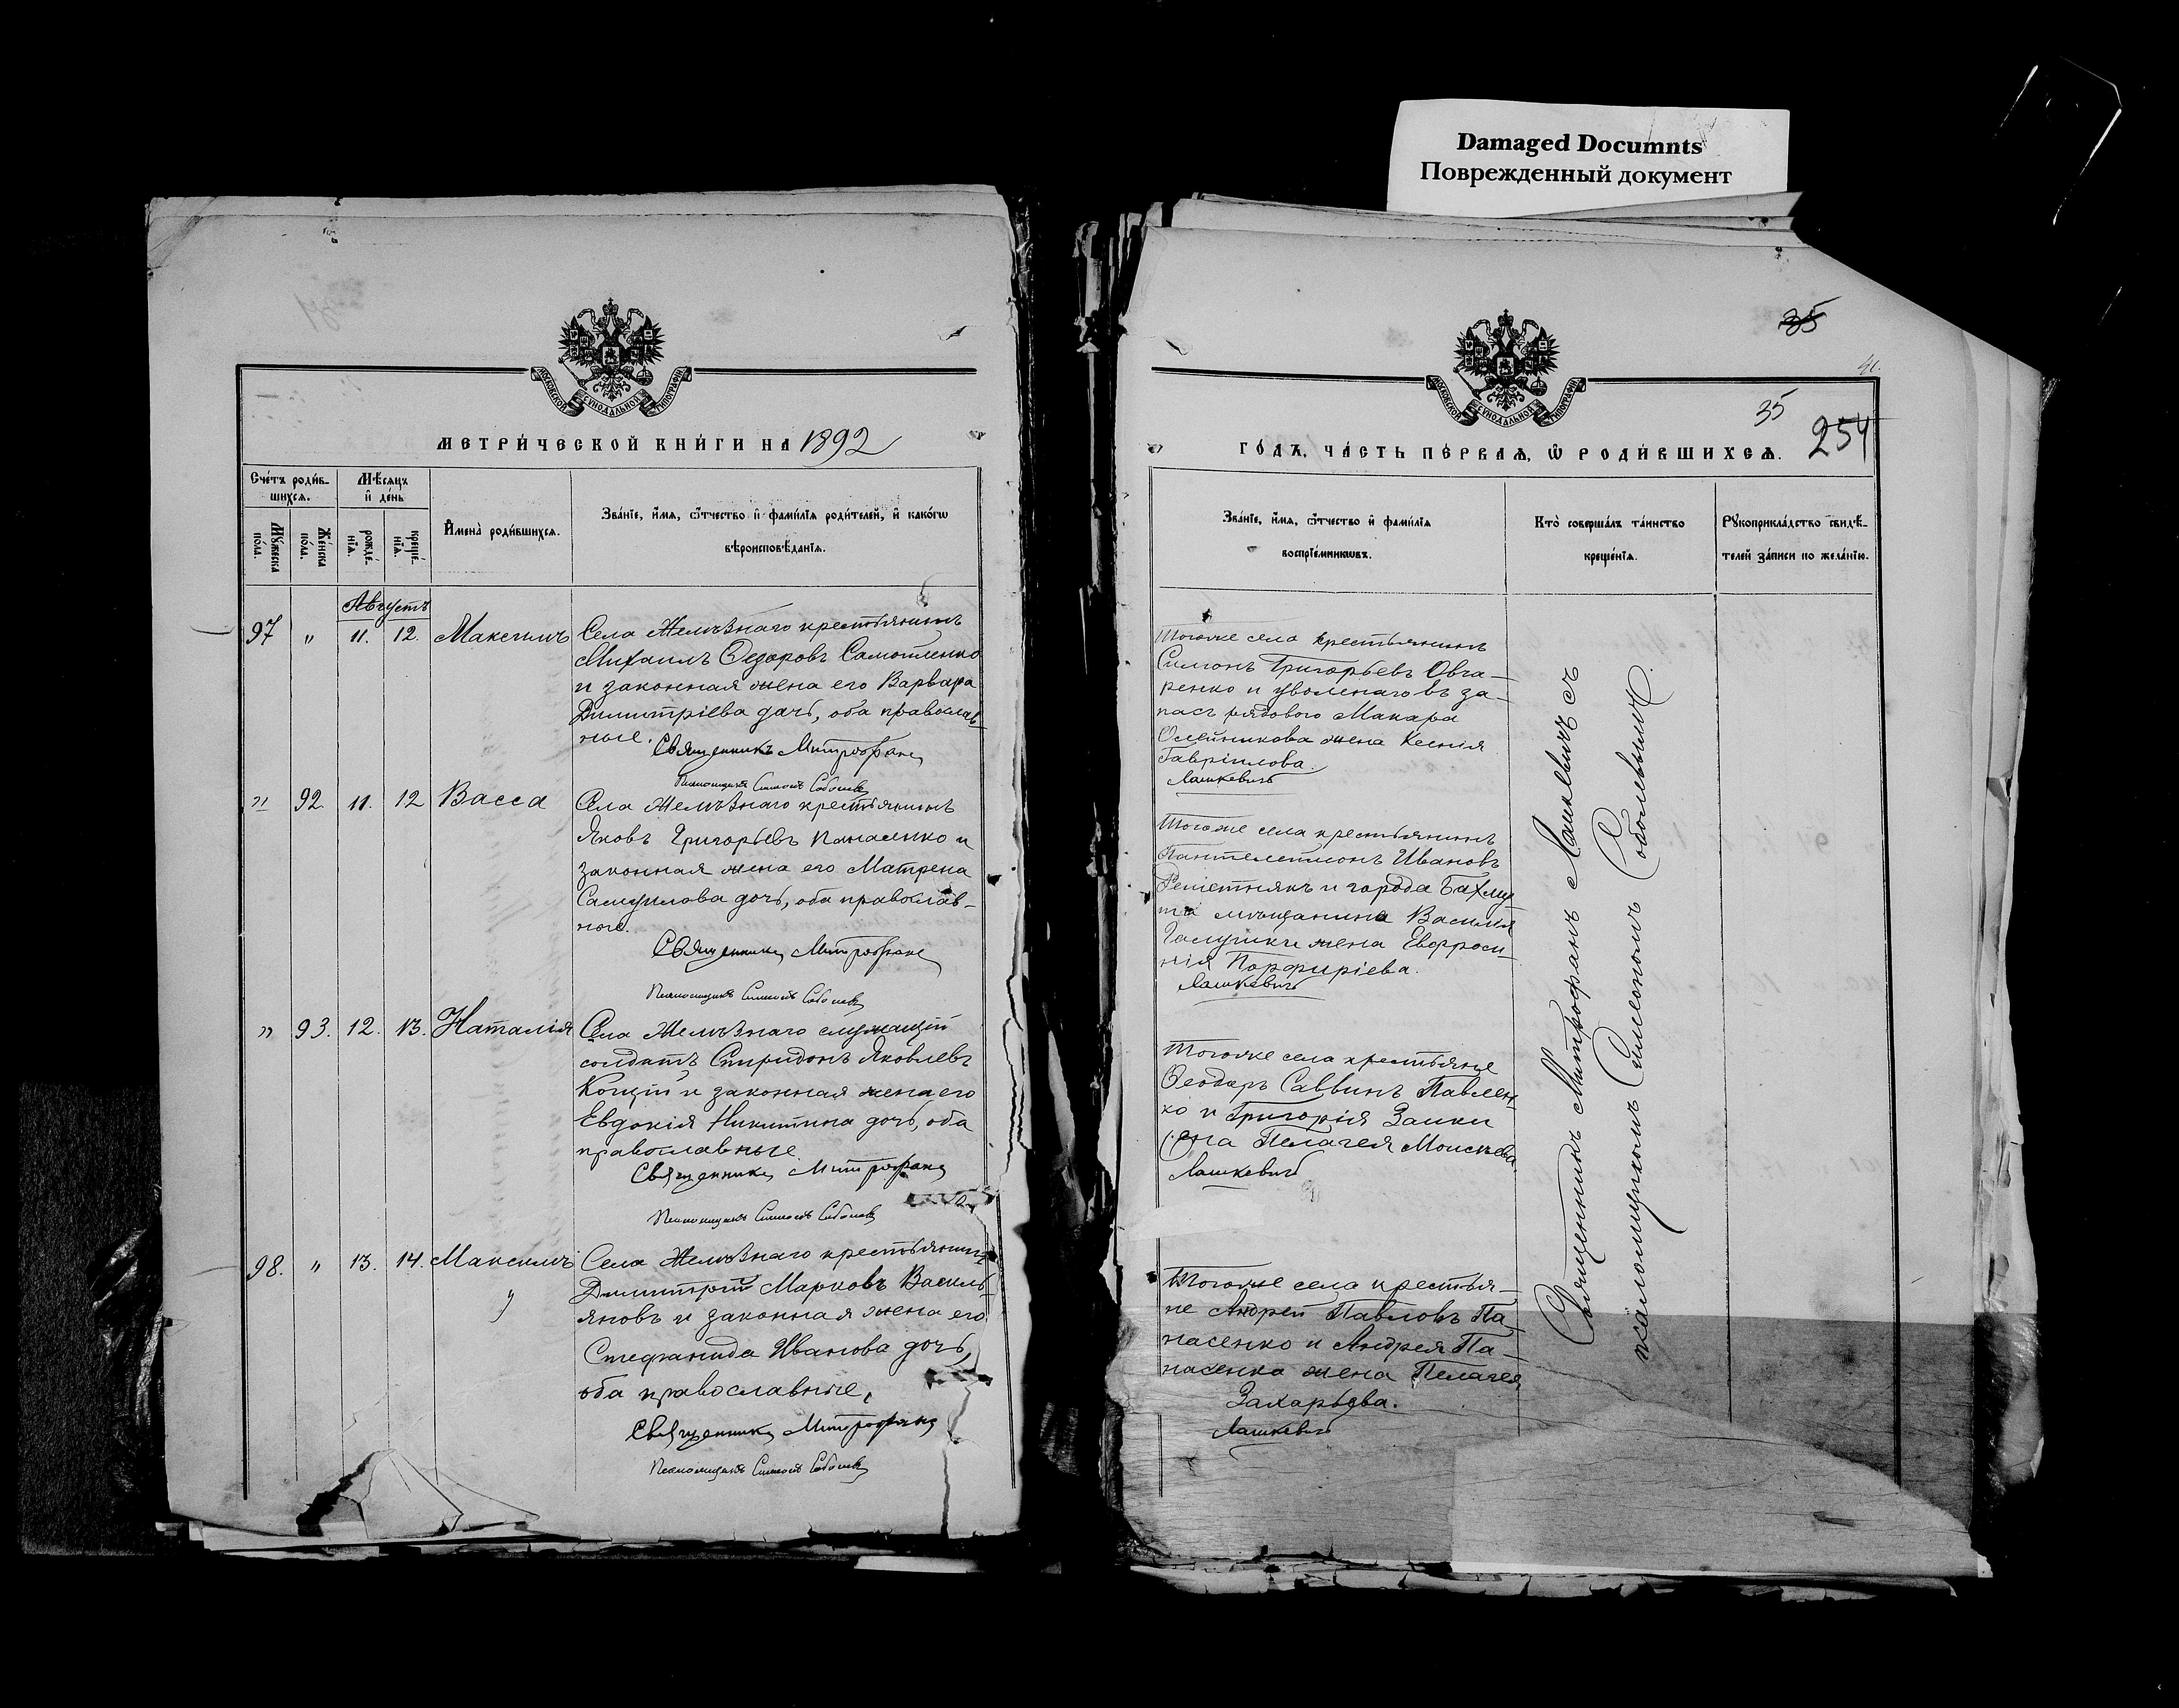 Damaged Documnts
Поврежденный документ
МОСКОВСКОЙ СѴНОДАЛЬНОЙ ТИПОГРАФІИ
МЕТРИ́ЧЕСКОЙ КНИ́ГИ НА 1892
Сче́тъ роди́в-
шихсѧ.
Мѣ́сѧцъ
и҆ де́нь
Мꙋ́жеска
по́ла.
Же́нска
по́ла.
рожде́-
нїѧ.
креще́-
нїѧ.
И҆мена̀ роди́вшихсѧ.
Зва́нїе, и҆́мѧ, ѻ҆́тчество и҆ фами́лїѧ роди́телей, и҆ како́гѡ
вѣроисповѣ́данїѧ.
Августъ
97 " 11. 12. Максимъ
Села Желѣзнаго крестьянинъ
Михаилъ Ѳедоровъ Самойленко
и законная жена его Варвара
Димитріева дочь, оба православ-
ные.
Священникъ Митрофанъ
Псаломщикъ Симеонъ Соболевъ
" 92 11. 12 Васса
Села Желѣзнаго крестьянинъ
Яковъ Григорьевъ Панасенко и
законная жена его Матрена
Самуилова дочь, оба православ-
ные.
Священникъ Митрофанъ
Псаломщикъ Симеонъ Соболевъ
" 93. 12. 13. Наталія
Села Желѣзнаго служащій
солдатъ Спиридонъ Яковлевъ
Коцій и законная жена его
Евдокія Никитина дочь, оба
православные.
Священникъ Митрофанъ
Псаломщикъ Симеонъ Соболевъ
98. " 13. 14. Максимъ
Села Желѣзнаго крестьянинъ
Димитрій Марковъ Василь-
яновъ и законная жена его
Стефанида Иванова дочь,
оба православные.
Священникъ Митрофанъ
Псаломщикъ Симеонъ Соболевъ
35
41.
35
254
МОСКОВСКОЙ СѴНОДАЛЬНОЙ ТИПОГРАФІИ
ГО́ДЪ, ЧА́СТЬ ПЕ́РВАѦ, Ѽ РОДИ́ВШИХСѦ.
Зва́нїе, и҆́мѧ, ѻ҆́тчество и҆ фами́лїѧ
воспрїе́мникѡвъ.
Кто̀ соверша́лъ та́инство
креще́нїѧ.
Рꙋкоприкла́дство свидѣ́-
телей за́писи по жела́нїю.
Тогоже села крестьянинъ
Симонъ Григорьевъ Овча-
ренко и уволенаго въ за-
пасъ рядового Макара
Олейникова жена Ксенія
Гавріилова.
Лашкевичъ
Тогоже села крестьянинъ
Пантелеимонъ Ивановъ
Решетнякъ и города Бахму-
та мѣщанина Василія
Галушки жена Евфроси-
нія Порфиріева.
Лашкевичъ
Тогоже села крестьяне
Ѳеодоръ Саввинъ Павлен-
ко и Григорія Заики
жена Пелагея Моисѣева
Лашкевичъ
Тогоже села крестья-
не Андрей Павловъ Па-
насенко и Андрея Па-
насенка жена Пелагея
Захарьева.
Лашкевичъ
Священникъ Митрофанъ Лашкевичъ съ
псаломщикомъ Симеономъ Соболевымъ.